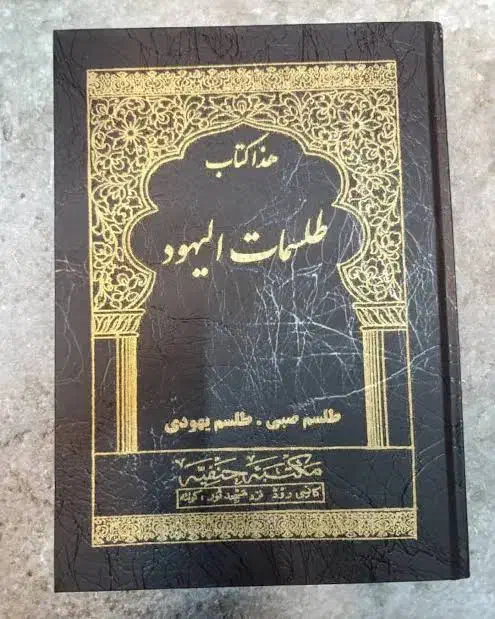 هذا كتاب
طلسمات اليهود
طلسم صبی . طلسم یهودی
مكتبه حنفیه
کانسی روڈ نزد مسجد نور، کوئٹہ